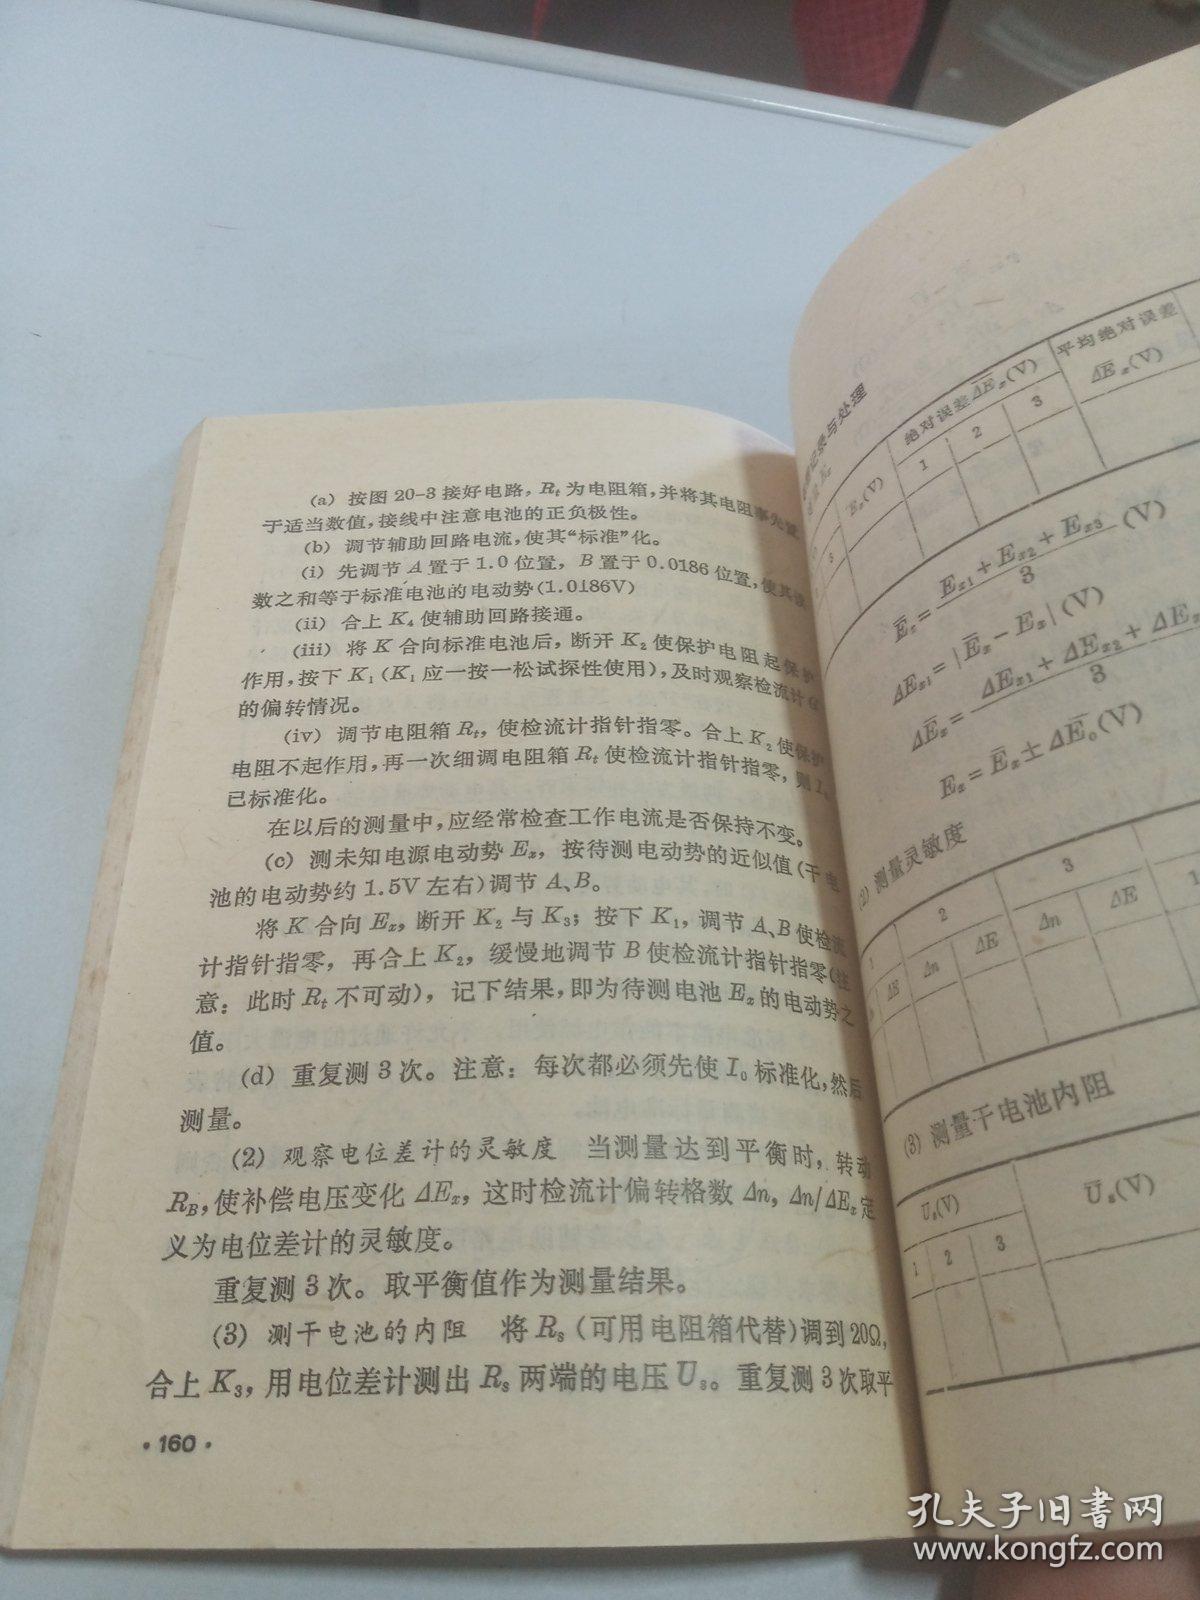 (a) 按图 20-3 接好电路, Rt 为电阻箱, 并将其电阻事先置
于适当数值, 接线中注意电池的正负极性。
(b) 调节辅助回路电流, 使其“标准”化。
(i) 先调节 A 置于 1.0 位置, B 置于 0.0186 位置, 使其读
数之和等于标准电池的电动势(1.0186V)
(ii) 合上 K4 使辅助回路接通。
(iii) 将 K 合向标准电池后, 断开 K2 使保护电阻起保护
作用, 按下 K1 (K1 应一按一松试探性使用), 及时观察检流计 G
的偏转情况。
(iv) 调节电阻箱 Rt, 使检流计指针指零。合上 K2 使保护
电阻不起作用, 再一次细调电阻箱 Rt 使检流计指针指零, 则 I0
已标准化。
在以后的测量中, 应经常检查工作电流是否保持不变。
(c) 测未知电源电动势 Ex, 按待测电动势的近似值(干电
池的电动势约 1.5V 左右)调节 A、B。
将 K 合向 Ex, 断开 K2 与 K3; 按下 K1, 调节 A、B 使检流
计指针指零, 再合上 K2, 缓慢地调节 B 使检流计指针指零(注
意: 此时 Rt 不可动), 记下结果, 即为待测电池 Ex 的电动势之
值。
(d) 重复测 3 次。注意: 每次都必须先使 I0 标准化, 然后
测量。
(2) 观察电位差计的灵敏度 当测量达到平衡时, 转动
RB, 使补偿电压变化 ΔEx, 这时检流计偏转格数 Δn, Δn/ΔEx 定
义为电位差计的灵敏度。
重复测 3 次。取平衡值作为测量结果。
(3) 测干电池的内阻 将 Rs (可用电阻箱代替)调到 20Ω,
合上 K3, 用电位差计测出 Rs 两端的电压 Us。重复测 3 次取平
·160·
记录与处理
Ex(V) 绝对误差 ΔEx(V) 平均绝对误差
ΔEx(V)
1 2 3
Ex = Ex1 + Ex2 + Ex3 / 3 (V)
ΔEx1 = |Ex − Ex| (V)
ΔEx = ΔEx1 + ΔEx2 + ΔEx / 3
Ex = Ex ± ΔE0 (V)
(2) 测量灵敏度
1 2 3
ΔE Δn ΔE Δn ΔE 1
(3) 测量干电池内阻
Us(V) Us(V)
1 2 3
孔夫子旧书网
www.kongfz.com